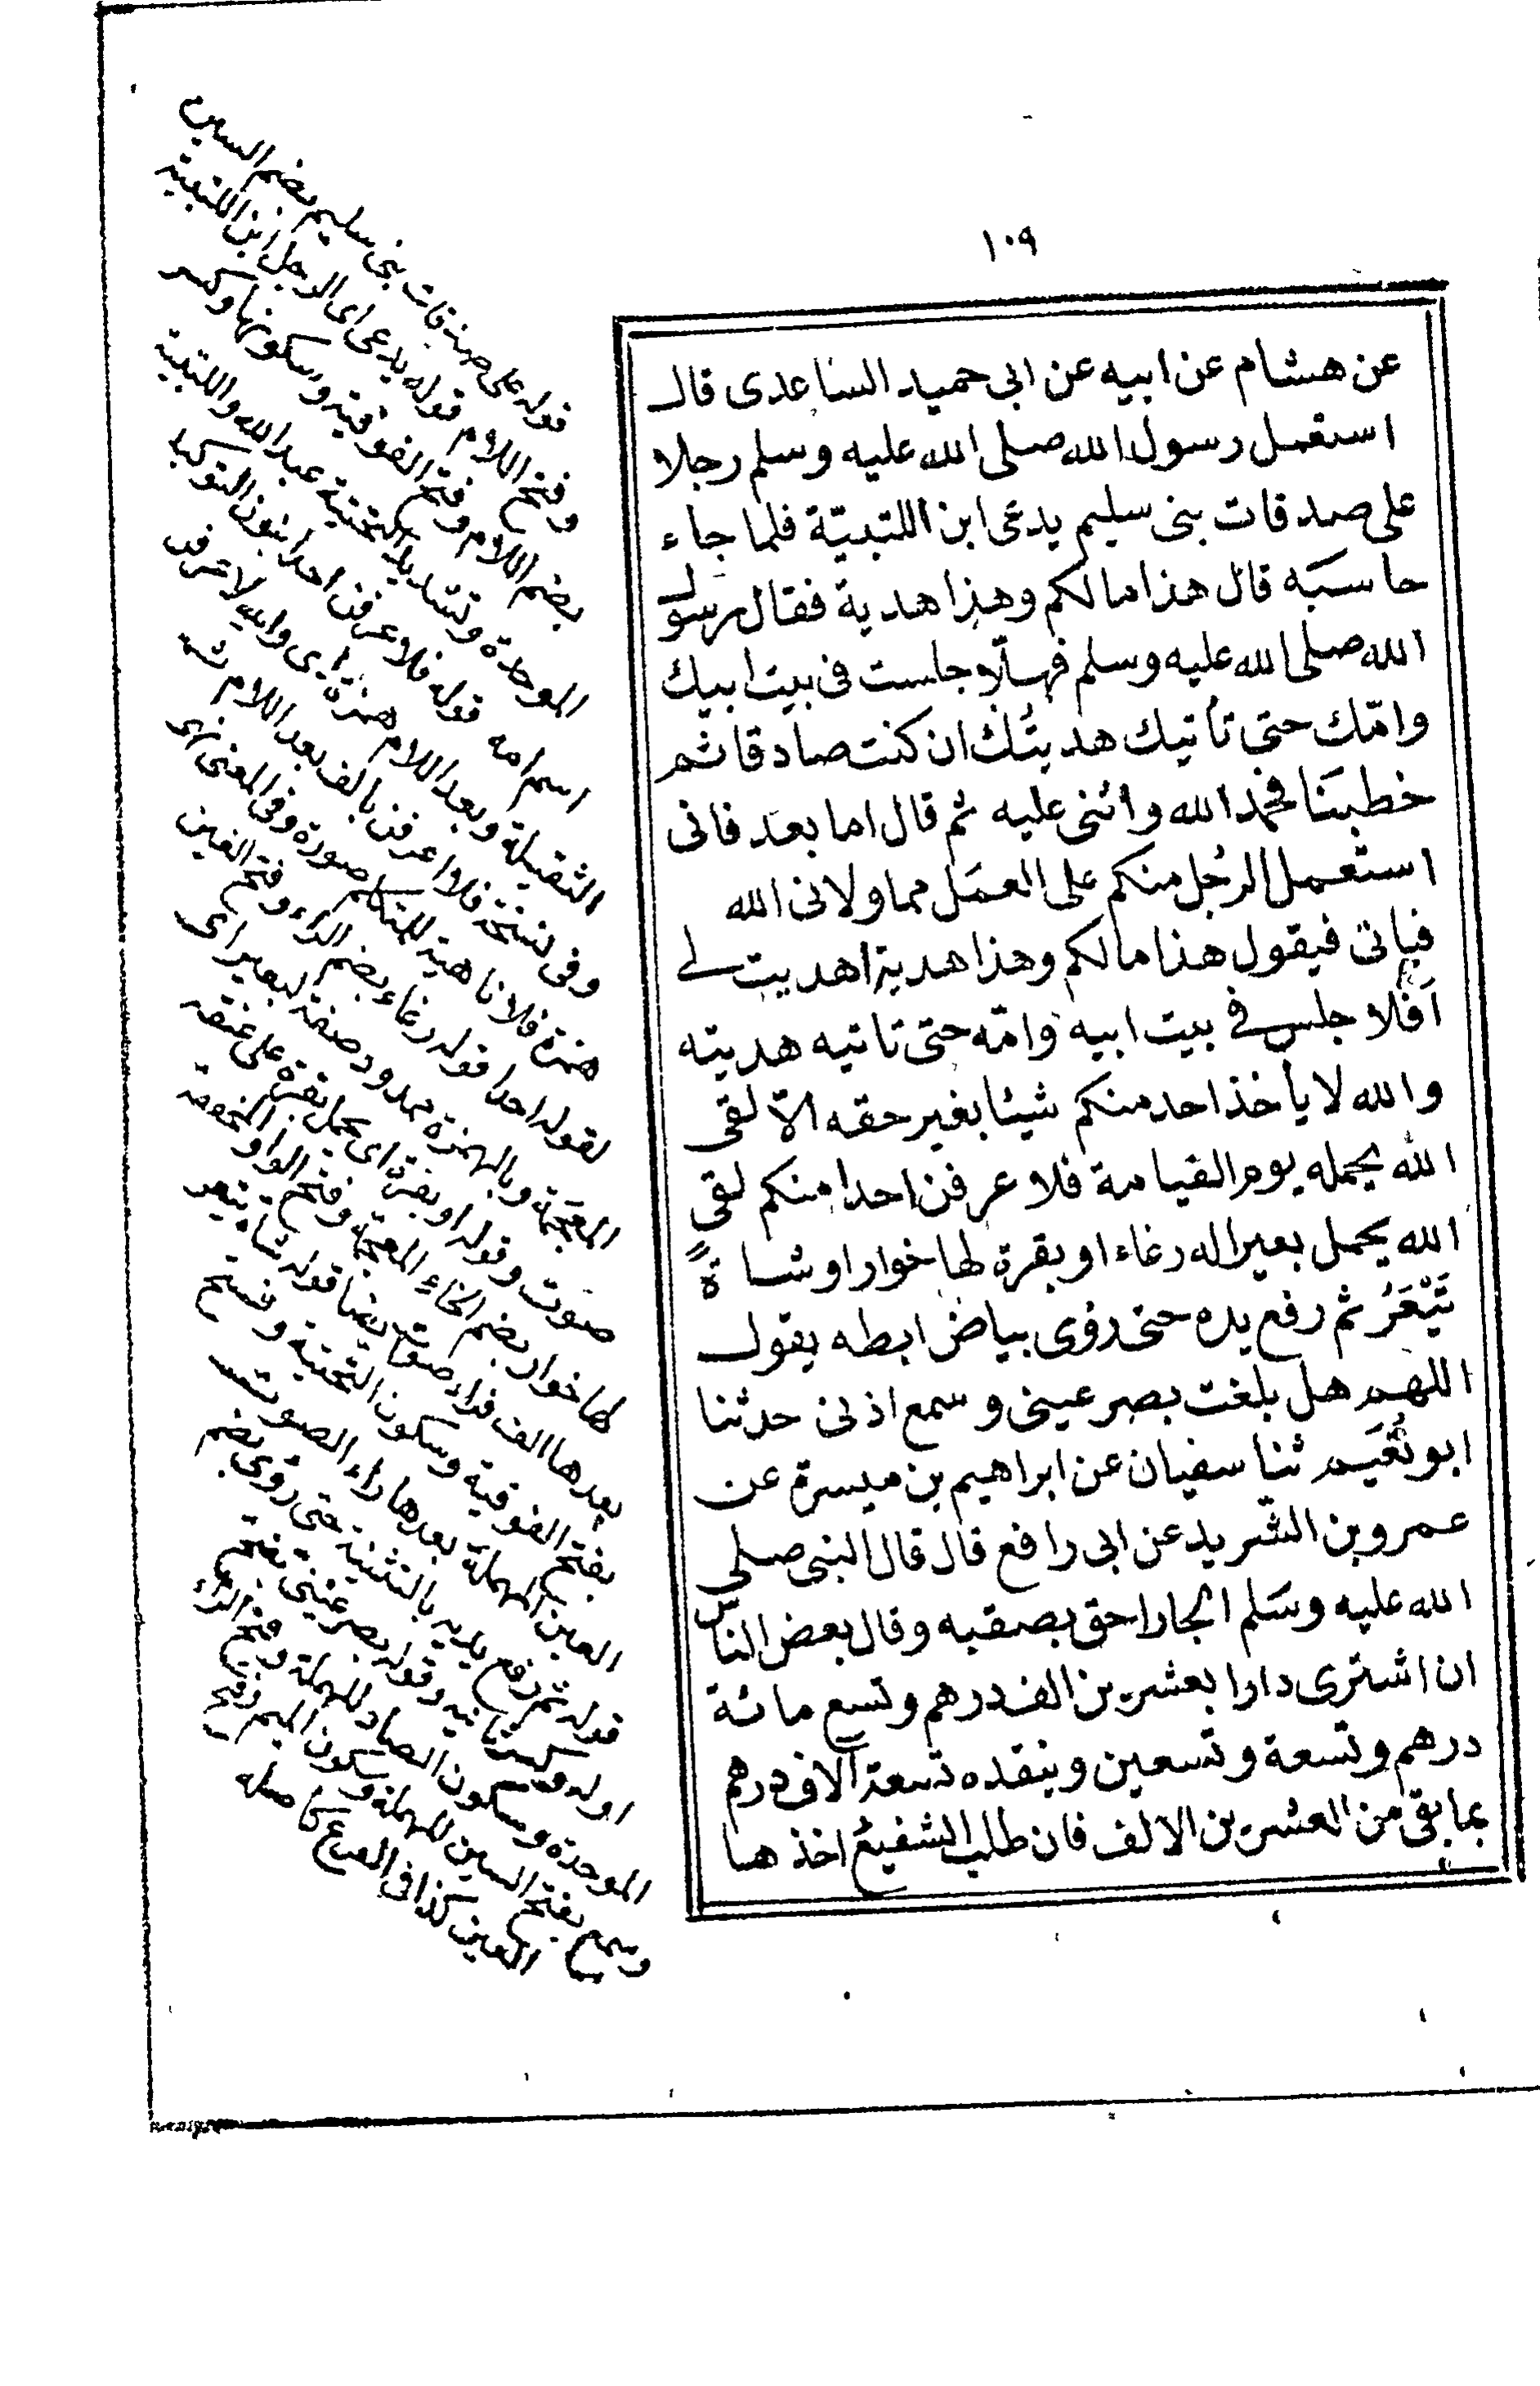 ١٠٩
عن هشام عن ابيه عن ابى حميد الساعدى قال
استعمل رسول الله صلى الله عليه وسلم رجلا
على صدقات بنى سليم يدعى ابن اللتبيّة فلما جاء
حاسبَه قال هذا مالكم وهذا هدية فقال رسول
الله صلى الله عليه وسلم فهلّا جلست فى بيت ابيك
وامّك حتى تأتيك هديتُك ان كنت صادقا ثم
خطبَنا فحمد الله واثنى عليه ثم قال اما بعد فانى
استعمل الرجُل منكم على العمَل مما ولانى الله
فياتى فيقول هذا مالكم وهذا هدية اهديت لى
اَفلا جلس فى بيت ابيه وامّه حتى تاتيه هديته
والله لا يأخذ احد منكم شيئا بغير حقه الّا لقى
الله يحمله يوم القيامة فلا عرفن احدا منكم لقى
الله يحمل بعيرا له رغاء او بقرة لها خوار او شاةً
تَيْعَرُ ثم رفع يده حتى رؤى بياض ابطه يقول
اللهم هل بلغت بصر عينى وسمع اذنى حدثنا
ابو نُعَيم ثنا سفيان عن ابراهيم بن ميسرة عن
عمرو بن الشريد عن ابى رافع قال قال النبى صلى
الله عليه وسَلم الجار احق بصقبه وقال بعض الناس
ان اشترى دارا بعشرين الف درهم وتسع مائة
درهم وتسعة وتسعين وينقده تسعة آلاف درهم
بما بقى من العشرين الالف فان طلب الشفيع اخذها
قوله على صدقات بنى سليم بضم السين
وفتح اللام قوله يدعى اى الرجل ابن اللتبية
بضم اللام وفتح الفوقية وسكونها وكسر
الموحدة وتشديد التحتية عبد الله واللتبية
اسم امه قوله فلا عرفن احدا بنون التوكيد
الثقيلة وبعد اللام همزة اى والله لاعرفن
وفى نسخة فلا اعرفن بالف بعد اللام ثم
همزة فلا ناهية للمتكلم صورة وفى المعنى نهى
لقوله احدا قوله رغاء بضم الراء وفتح الغين
المعجمة وبالهمزة ممدود صفة لبعير اى
صوت وقوله او بقرة اى يحمل بقرة على عنقه
لها خوار بضم الخاء المعجمة وفتح الواو المخففة
بعدها الف فراء صوت ايضا قوله شاة تيعر
بفتح الفوقية وسكون التحتية وفتح
العين المهملة بعدها راء الصوت
قوله ثم رفع يديه بالتثنية حتى رؤى بضم
اوله وكسر ثانيه وقوله بصر عينى بفتح
الموحدة وسكون الصاد المهملة وفتح الراء
وسمع بفتح السين المهملة وسكون الميم وفتح
العين كذا فى الفرع كاصله